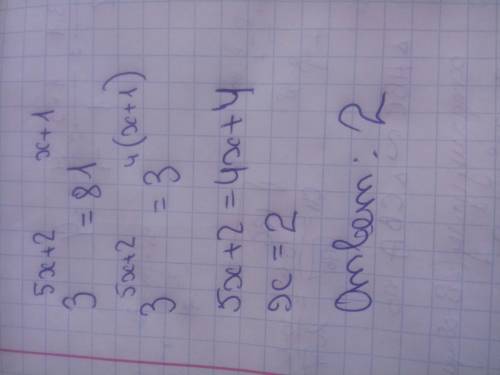 3^{5x+2} = 81^{x+1}
3^{5x+2} = 3^{4(x+1)}
5x+2 = 4x+4
x = 2
Ответ: 2